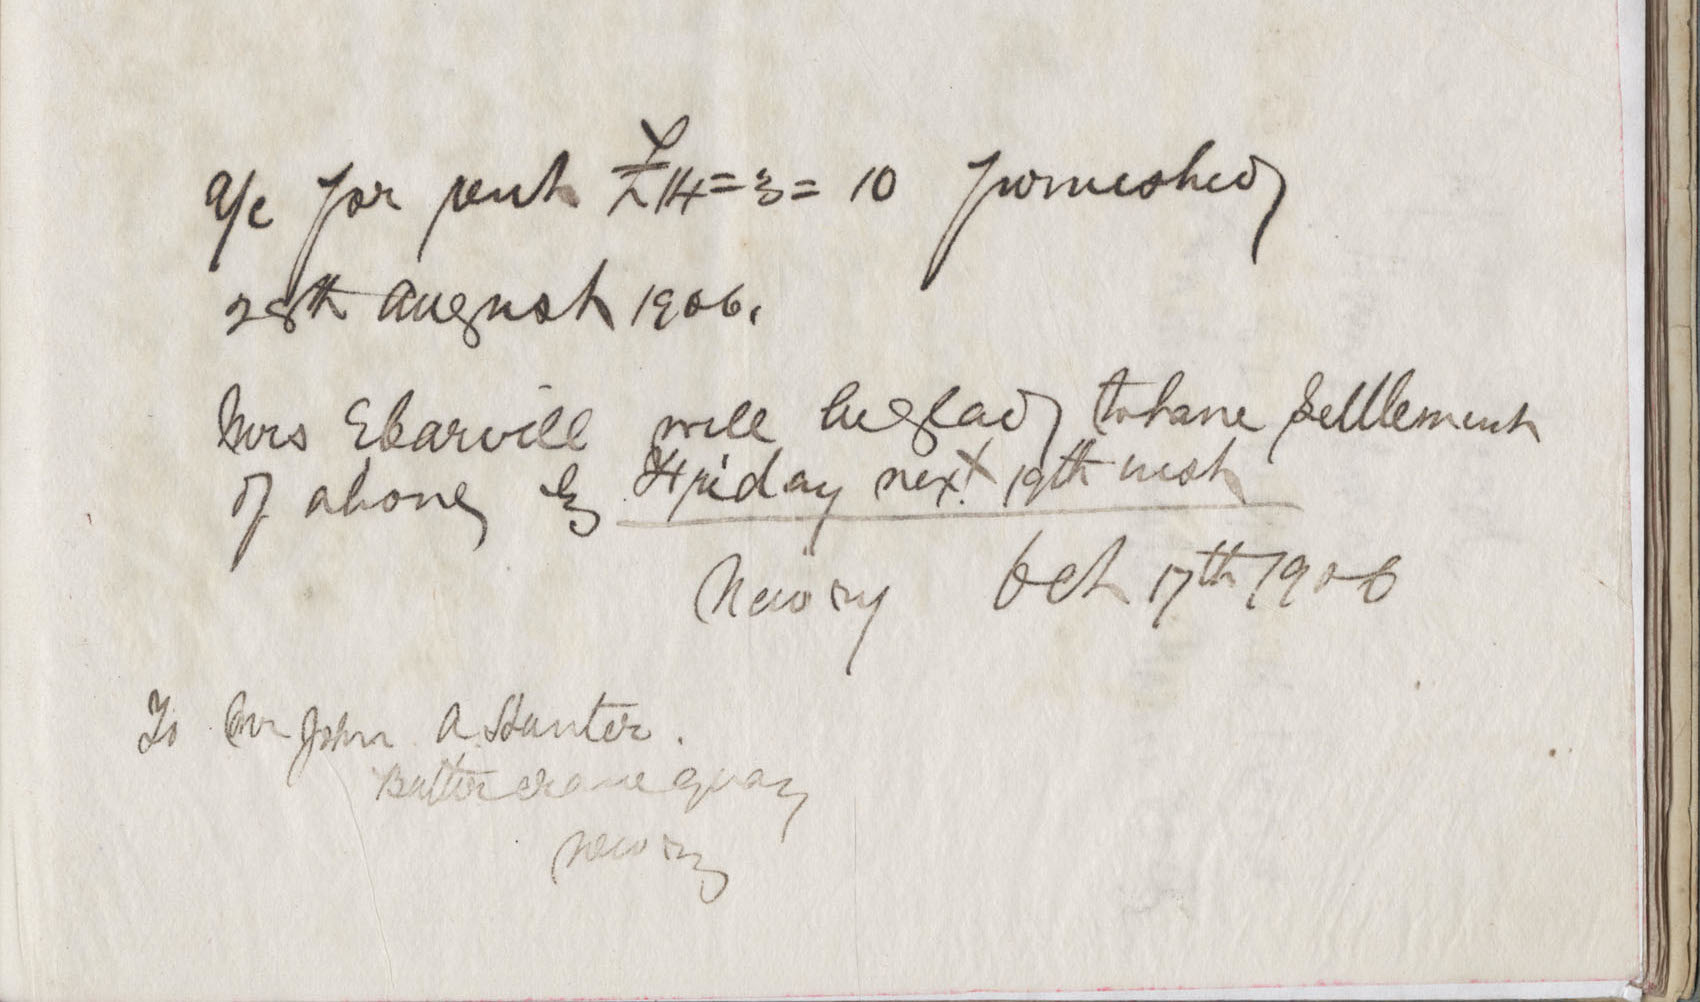 a/c for rent £14=3=10 furnished
28th August 1906.
Mrs E Carvill will be glad to have Settlement
of above by Friday next 19th inst
Newry Oct 17th 1906
To Mr John A Hunter.
Butter Crane Quay
Newry